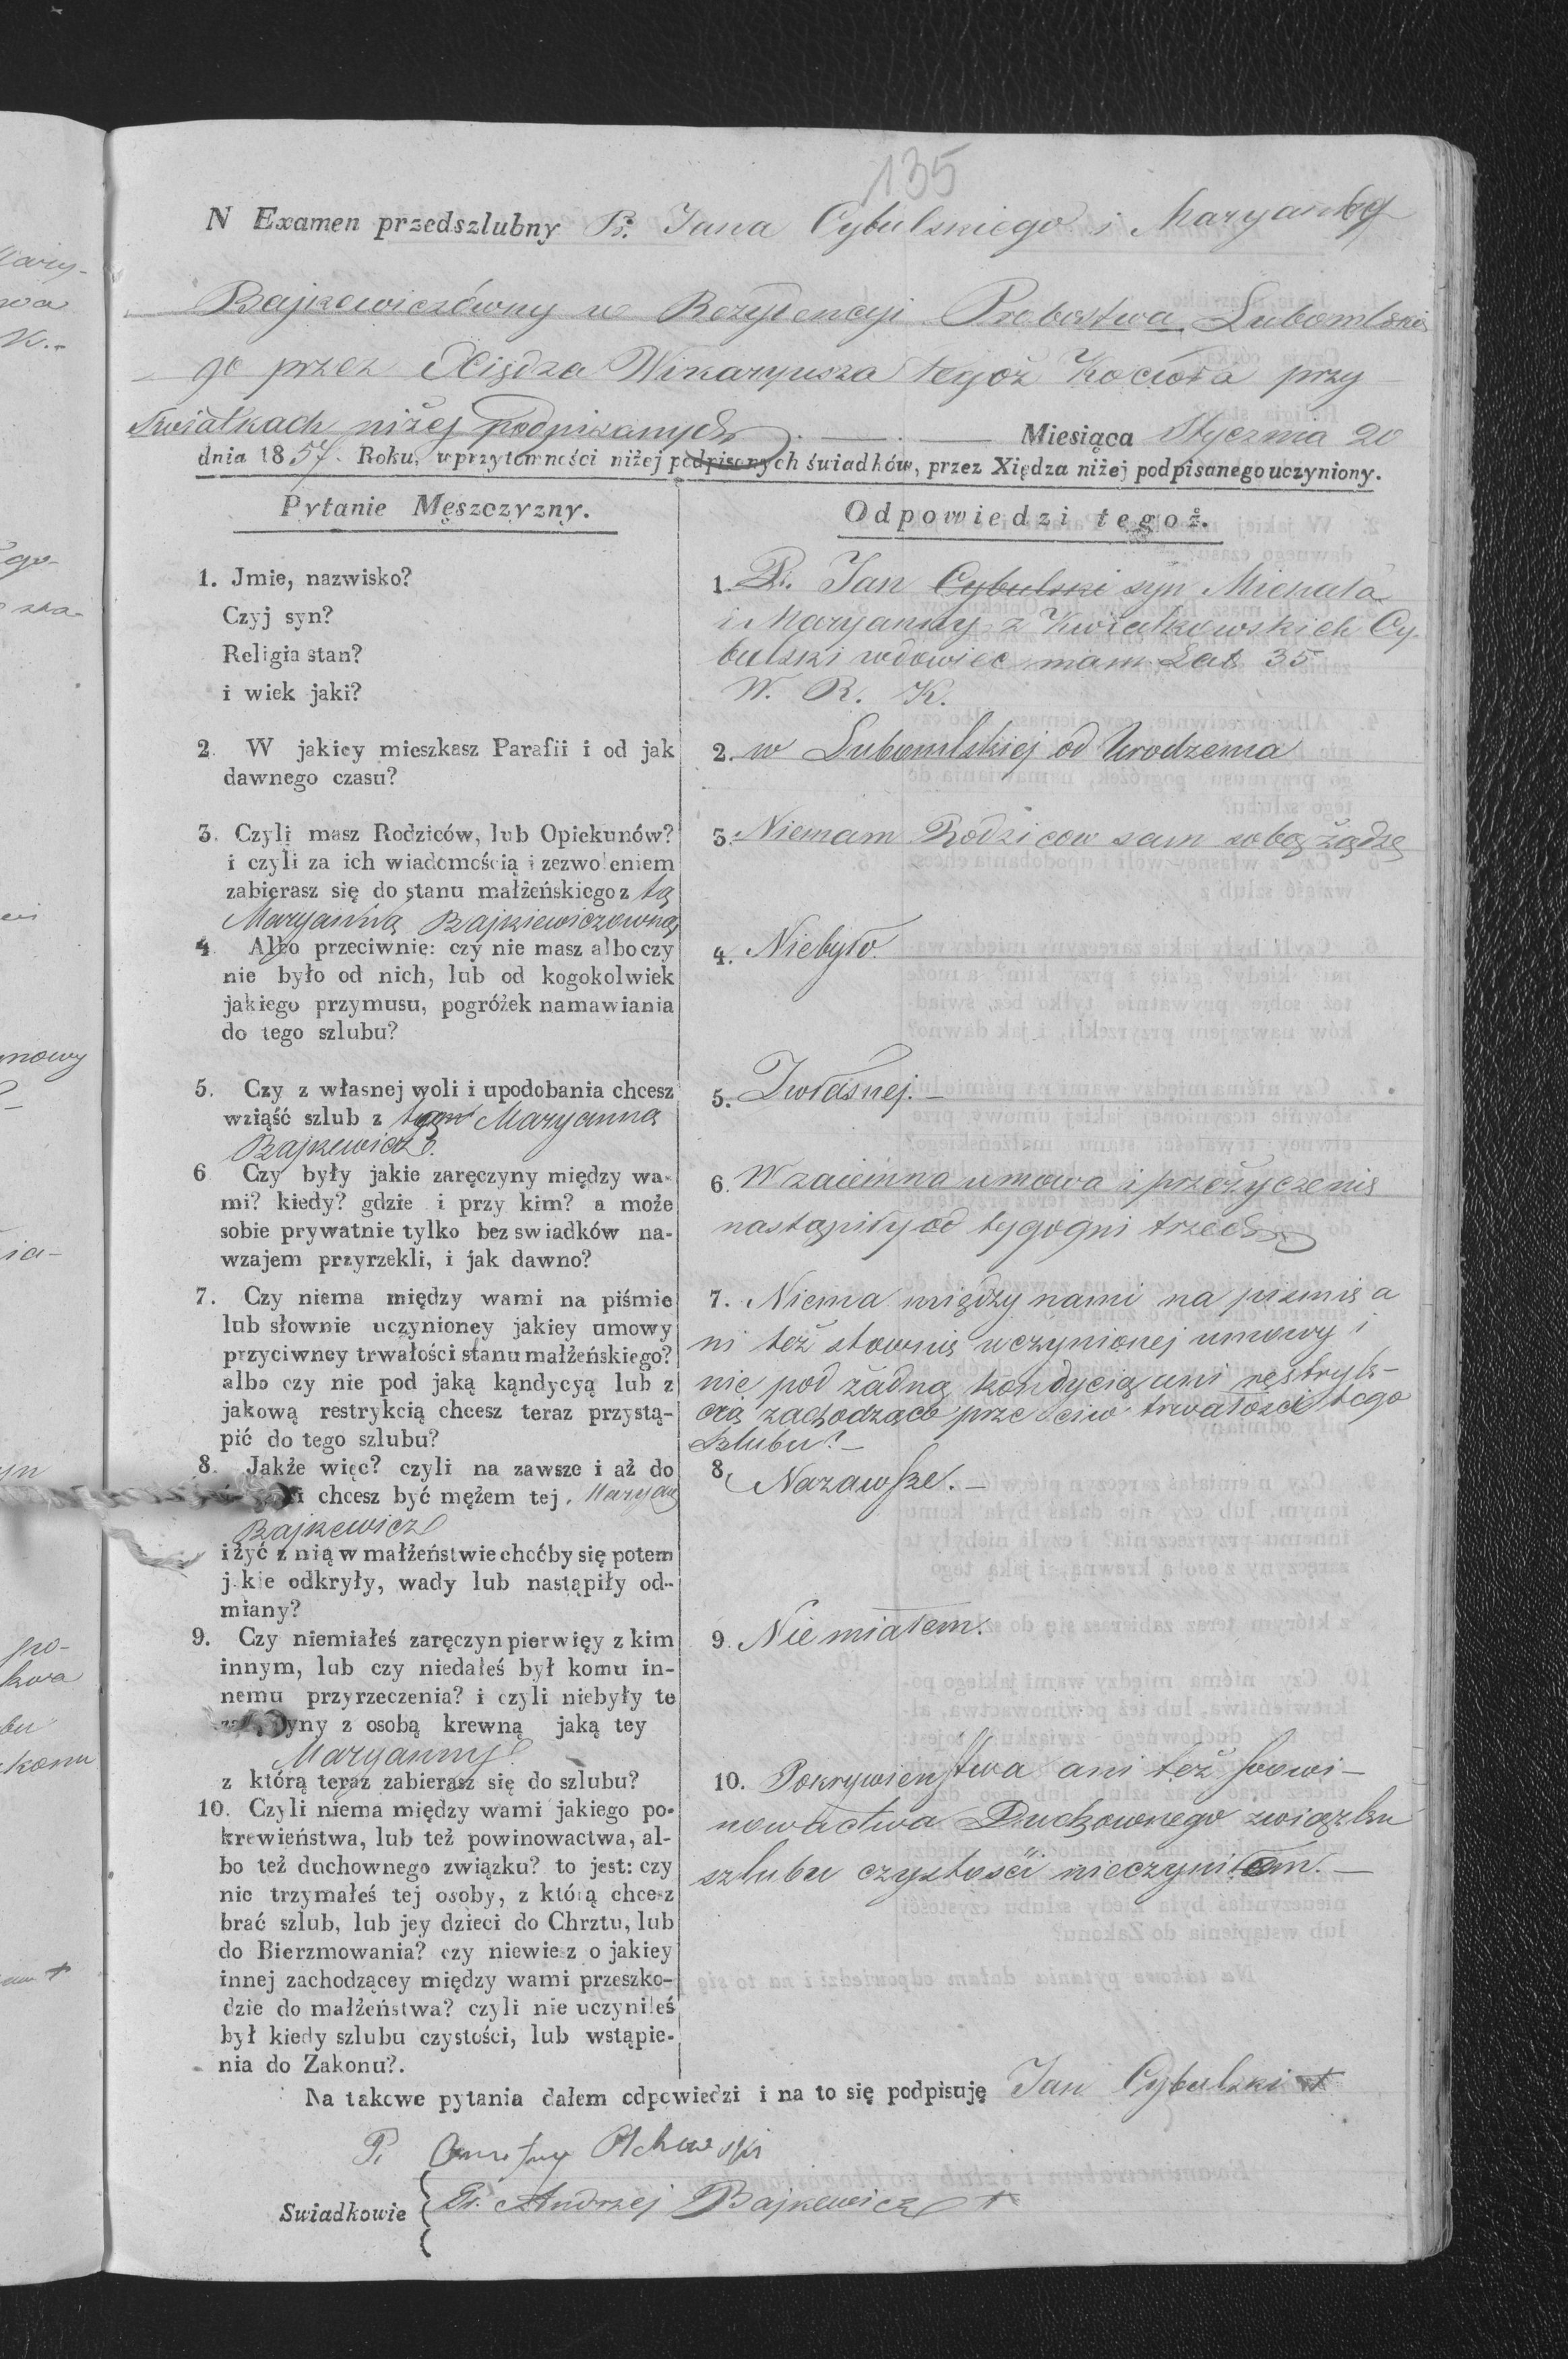 135
N Examen przedszlubny P. Jana Cybulskiego i Maryanny
Bajkewiczówny w Rezydencyi Probostwa Lubomlskie
go przez Xiędza Wikaryusza tegoż Kocioła przy
Swiatkach niżej podpisanych. Miesiąca Stycznia 20
dnia 1857. Roku, w przytomności niżej podpisanych świadków, przez Xiędza niżej podpisanego uczyniony.
Pytanie Męszczyzny.
Odpowiedzi tegoż.
1. Jmie, nazwisko?
Czyj syn?
Religia stan?
i wiek jaki?
1. P. Jan Cybulski syn Michała
i Maryanny z Kwiatkowskich Cy-
bulski wdowiec mam Lat 35
W. R. K.
2. W jakiey mieszkasz Parafii i od jak
dawnego czasu?
2. w Lubomlskiej od Urodzenia
3. Czyli masz Rodziców, lub Opiekunów?
i czyli za ich wiadomością i zezwoleniem
zabierasz się do stanu małżeńskiego z tą
Maryanną Bajkiewiczowną
3. Niemam Rodzicow sam sobą żądzę
4. Albo przeciwnie: czy nie masz albo czy
nie było od nich, lub od kogokolwiek
jakiego przymusu, pogróżek namawiania
do tego szlubu?
4. Niebyło.
5. Czy z własnej woli i upodobania chcesz
wziąść szlub z Maryanną
Bajkewicz.
5. Zwłasnej.—
6 Czy były jakie zaręczyny między wa-
mi? kiedy? gdzie i przy kim? a może
sobie prywatnie tylko bez swiadków na-
wzajem przyrzekli, i jak dawno?
6. Wzaiemna umowa i przeżyczenie
nastąpiły od tygogni trzech
7. Czy niema między wami na piśmie
lub słownie uczynioney jakiey umowy
przyciwney trwałości stanu małżeńskiego?
albo czy nie pod jaką kąndycyą lub z
jakową restrykcią chcesz teraz przystą-
pić do tego szlubu?
7. Niema między nami na pismie a
ni też słownie uczynionej umowy i
nie pod żadną kondycią ani restryk-
cią zachodzące przeciw trwałości tego
szlubu.—
8. Jakże więc? czyli na zawsze i aż do
i chcesz być mężem tej. Maryan
Bajkewicz
i żyć z nią w małżeństwie choćby się potem
j.kie odkryły, wady lub nastąpiły od-
miany?
8. Nazawsze.—
9. Czy niemiałeś zaręczyn pierwięy z kim
innym, lub czy niedałeś był komu in-
nemu przyrzeczenia? i czyli niebyły te
yny z osobą krewną jaką tey
Maryanny
z którą teraz zabierasz się do szlubu?
9. Nie miałem.
10. Czyli niema między wami jakiego po-
krewieństwa, lub też powinowactwa, al-
bo też duchownego związku? to jest: czy
nie trzymałeś tej osoby, z którą chcesz
brać szlub, lub jey dzieci do Chrztu, lub
do Bierzmowania? czy niewiesz o jakiey
innej zachodzącey między wami przeszko-
dzie do małżeństwa? czyli nie uczyniłeś
był kiedy szlubu czystości, lub wstąpie-
nia do Zakonu?.
10. Pokrywienstwa ani też powi-
nowactwa Duchownego związku
szlubu czystości nieczyniłem.—
Na takowe pytania dałem odpowiedzi i na to się podpisuję Jan Cybulski +
P.
Swiadkowie P. Andrzej Bajkewicz +